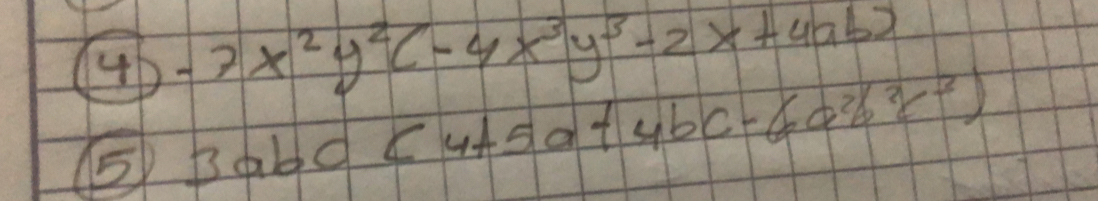 ④ -7x²y²(-4x³y³-2x+4ab)
⑤ 3abc (4+5a+4bc-6a²b²c²)